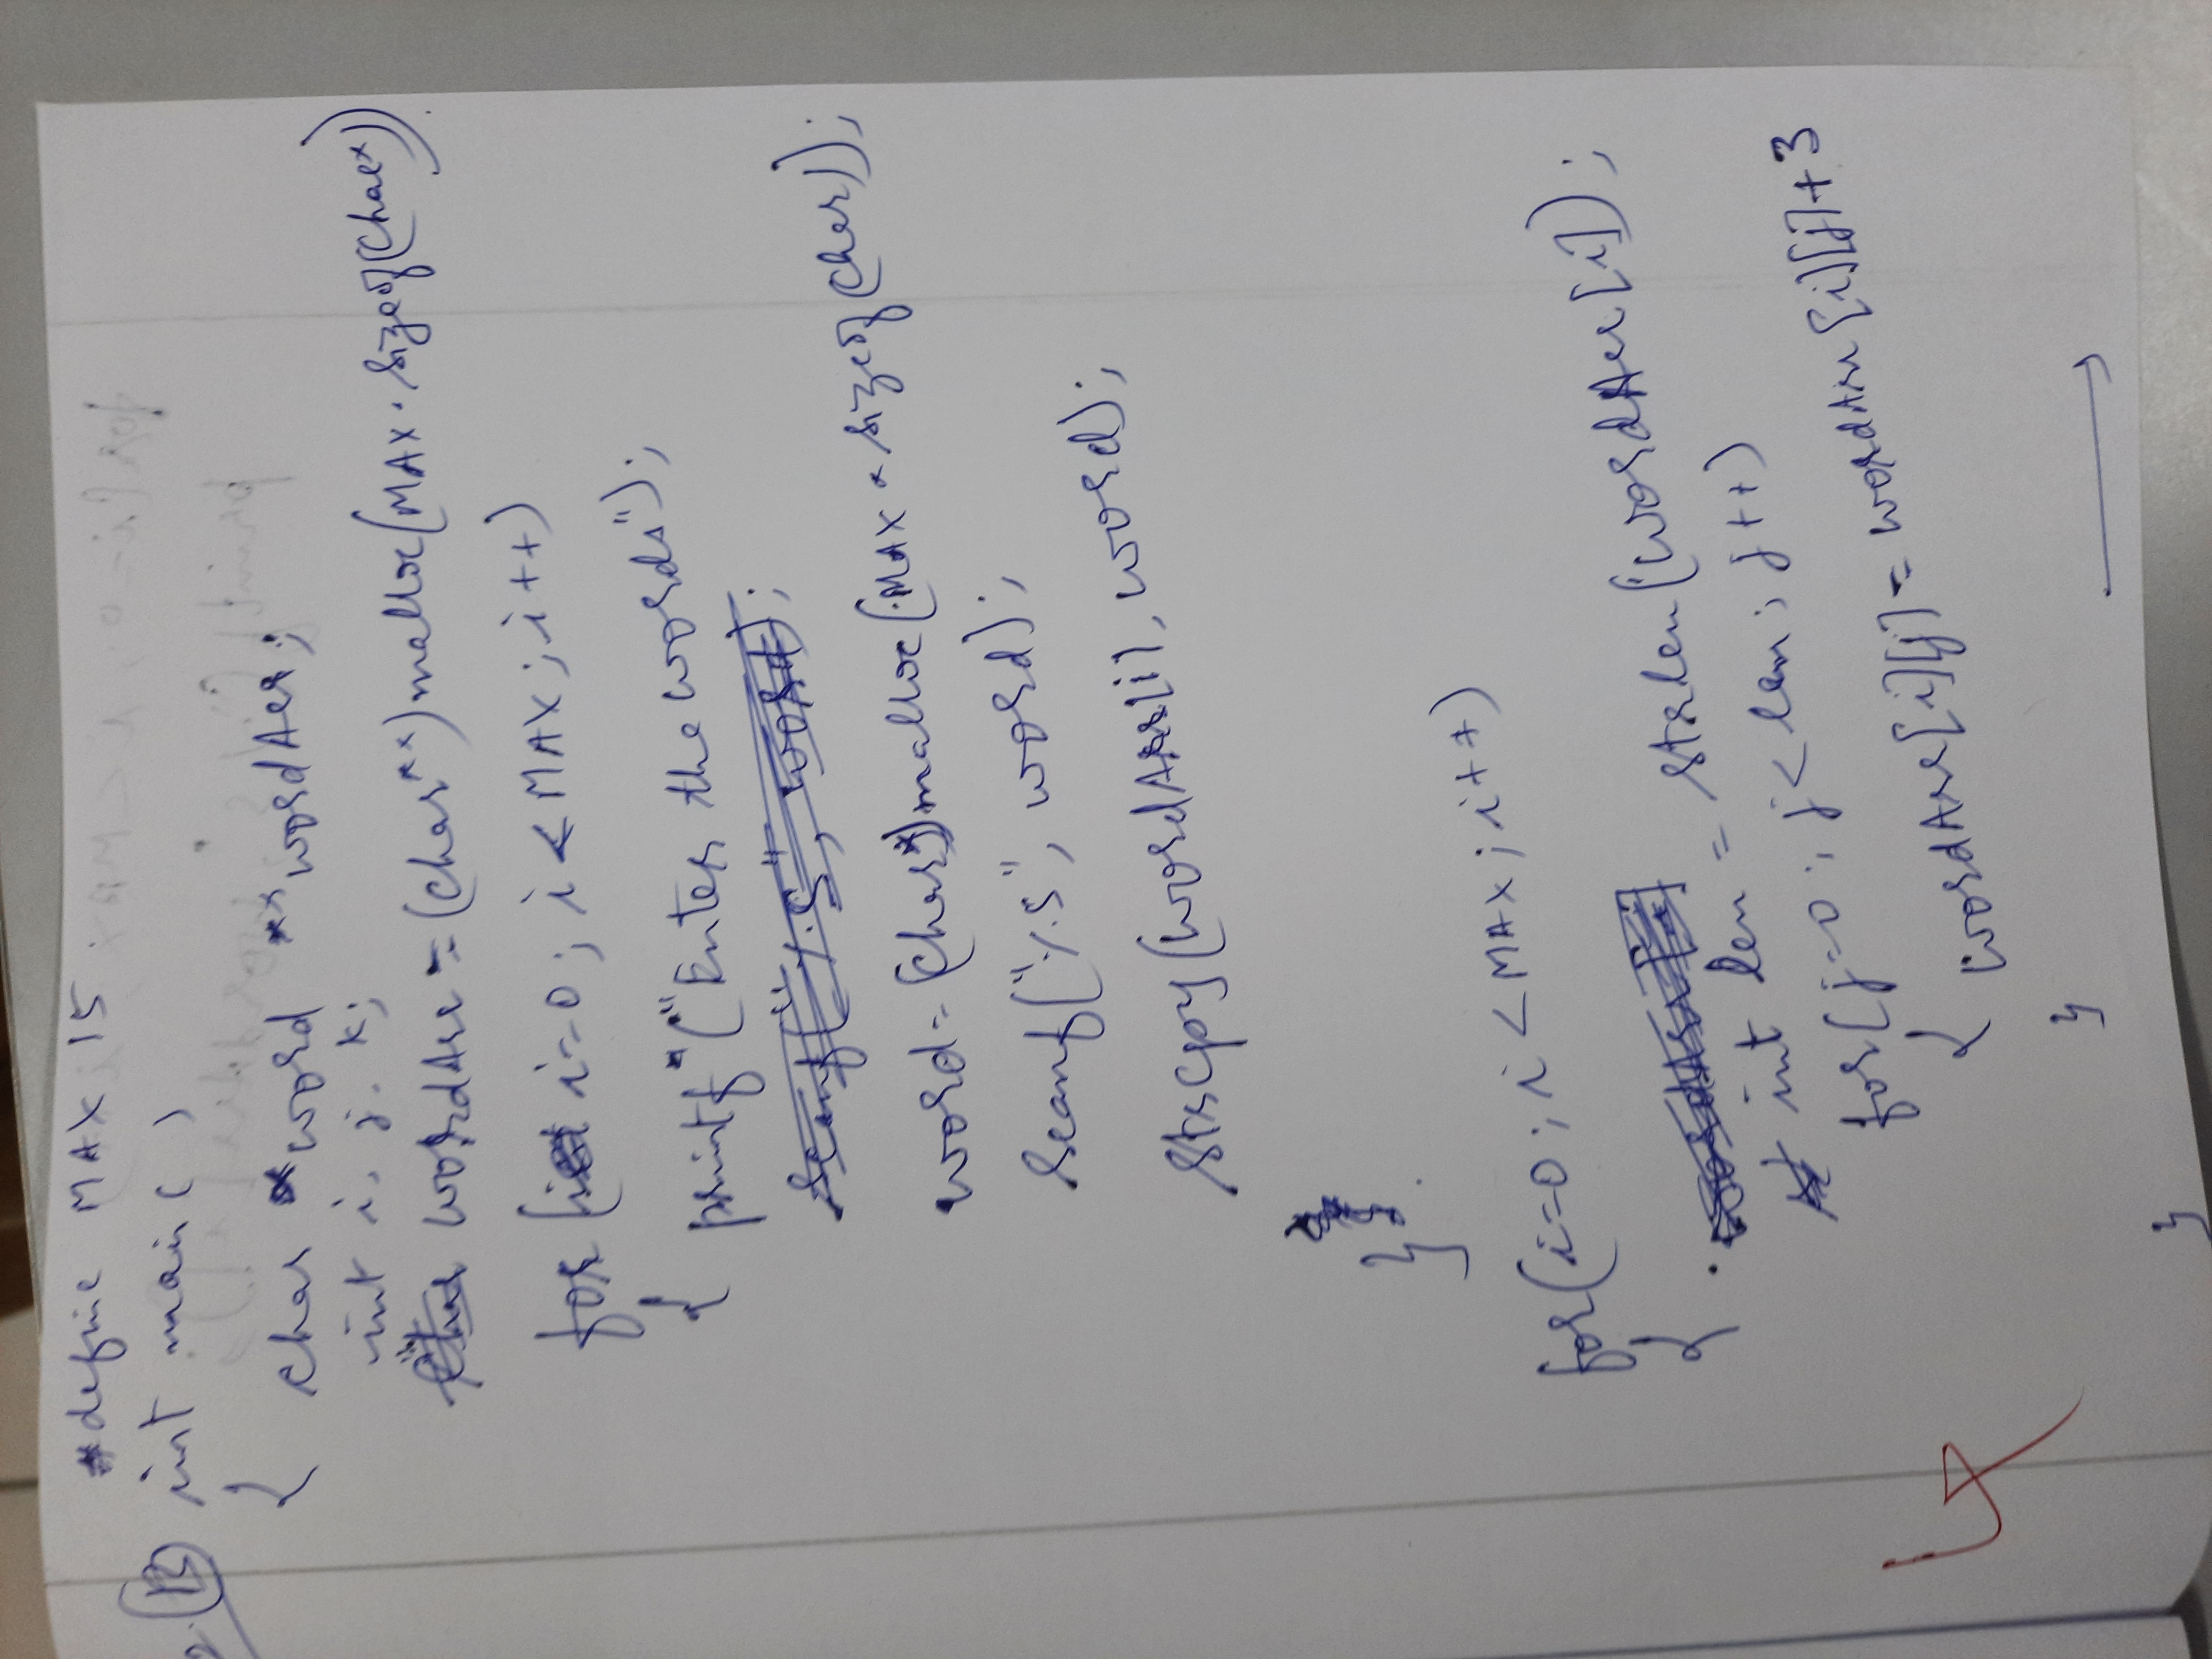 #define MAX 15
2. B int main( )
{ char *word **wordArr;
int i, j, k;
wordArr = (char**)malloc(MAX * sizeof(char*))
for (i=0; i<MAX; i++)
{ printf ("Enter the words");
scanf("%s", word);
word = (char*)malloc(MAX * sizeof(char));
scanf("%s", word);
strcpy(wordArr[i], word);
}
for(i=0; i<MAX; i++)
{ wordArr[i]
int len = strlen(wordArr[i]);
for(j=0; j<len; j++)
{ wordArr[i][j] = wordArr[i][j]+3
}
}
4
for(i=0; i<MAX; i++)
printf("%s", wordArr[i]);